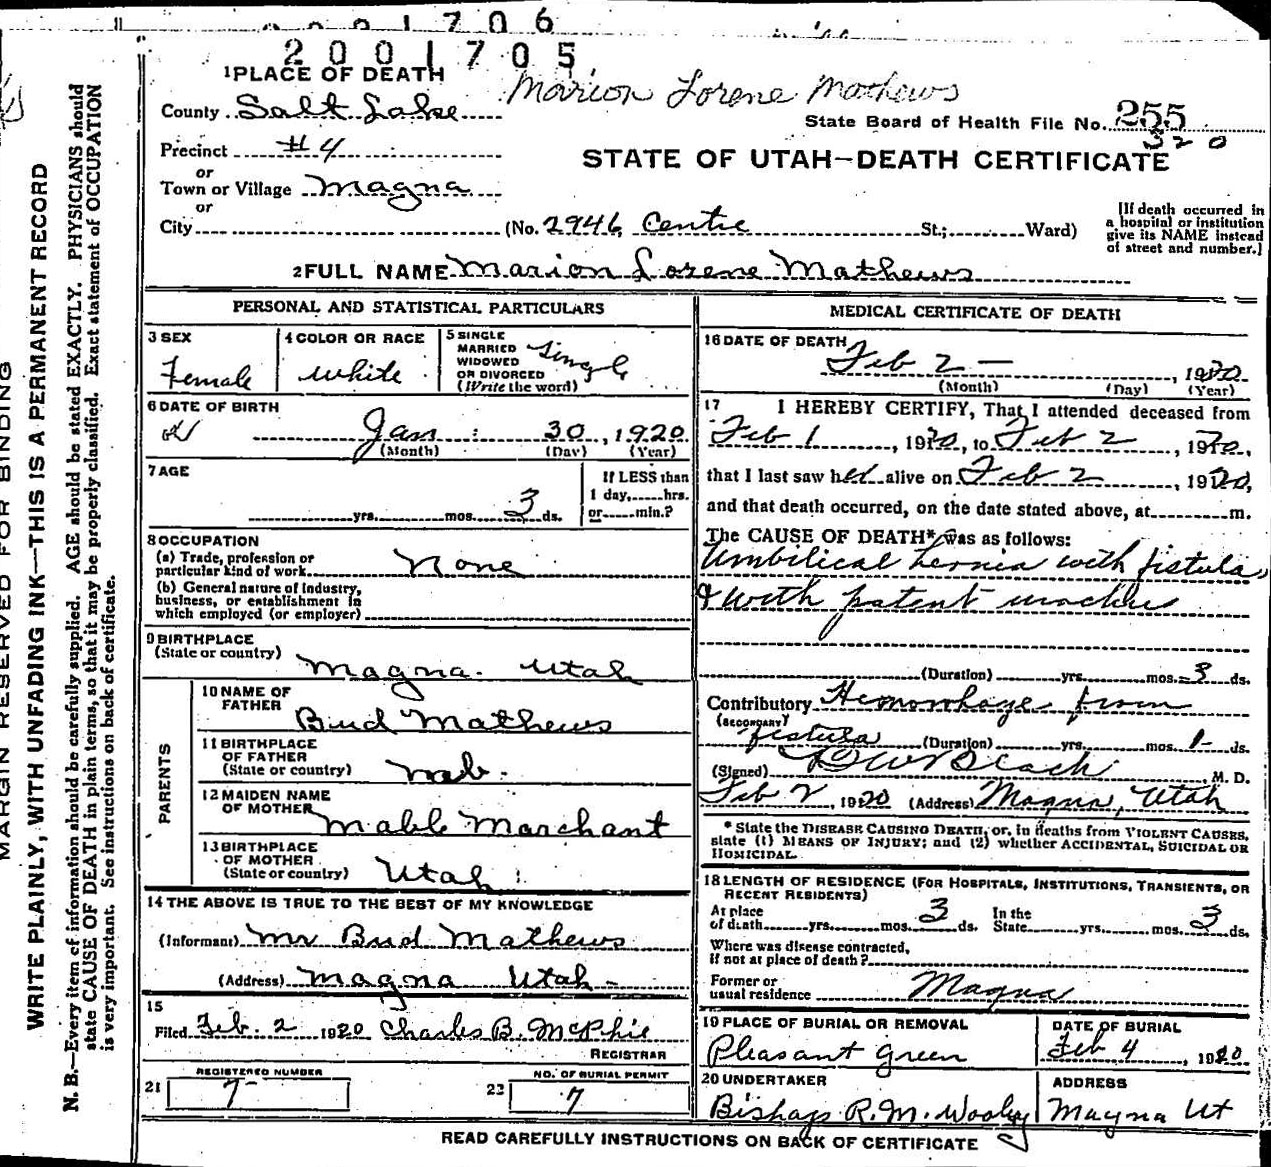 2001706
2001705
1 PLACE OF DEATH
Marion Lorene Mathews
County Salt Lake
State Board of Health File No. 255
320
Precinct #4
STATE OF UTAH—DEATH CERTIFICATE
or
Town or Village Magna
or
City (No. 2946 Centre St.; Ward)
[If death occurred in a hospital or institution give its NAME instead of street and number.]
2 FULL NAME Marion Lorene Mathews
PERSONAL AND STATISTICAL PARTICULARS
3 SEX
Female
4 COLOR OR RACE
White
5 SINGLE
MARRIED
WIDOWED
OR DIVORCED
(Write the word)
Single
6 DATE OF BIRTH
Jan 30, 1920
(Month) (Day) (Year)
7 AGE
If LESS than
1 day, hrs.
or min.?
yrs. mos. 3 ds.
8 OCCUPATION
(a) Trade, profession or
particular kind of work None
(b) General nature of industry,
business, or establishment in
which employed (or employer)
9 BIRTHPLACE
(State or country)
Magna. Utah
PARENTS
10 NAME OF
FATHER
Bud Mathews
11 BIRTHPLACE
OF FATHER
(State or country) Neb.
12 MAIDEN NAME
OF MOTHER
Mable Marchant
13 BIRTHPLACE
OF MOTHER
(State or country) Utah
14 THE ABOVE IS TRUE TO THE BEST OF MY KNOWLEDGE
(Informant) Mr Bud Mathews
(Address) Magna Utah -
15
Filed Feb. 2 1920 Charles B. McPhie
REGISTRAR
REGISTERED NUMBER
21 7
NO. OF BURIAL PERMIT
22 7
MEDICAL CERTIFICATE OF DEATH
16 DATE OF DEATH
Feb 2 —, 1920
(Month) (Day) (Year)
17 I HEREBY CERTIFY, That I attended deceased from
Feb 1, 1920, to Feb 2, 1920,
that I last saw her alive on Feb 2, 1920,
and that death occurred, on the date stated above, at m.
The CAUSE OF DEATH* was as follows:
Umbilical hernia with fistula,
& with patent urachus
(Duration) yrs. mos. 3 ds.
Contributory Hemorrhage from
(SECONDARY)
fistula (Duration) yrs. mos. 1 ds.
(Signed) Beach, M. D.
Feb 2, 1920 (Address) Magna, Utah
* State the DISEASE CAUSING DEATH, or, in deaths from VIOLENT CAUSES,
state (1) MEANS OF INJURY; and (2) whether ACCIDENTAL, SUICIDAL OR
HOMICIDAL.
18 LENGTH OF RESIDENCE (FOR HOSPITALS, INSTITUTIONS, TRANSIENTS, OR
RECENT RESIDENTS)
At place
of death yrs. mos. 3 ds.
In the
State yrs. mos. 3 ds.
Where was disease contracted,
if not at place of death?
Former or
usual residence Magna
19 PLACE OF BURIAL OR REMOVAL
Pleasant Green
DATE OF BURIAL
Feb 4, 1920
20 UNDERTAKER
Bishop R. M. Wooley
ADDRESS
Magna Ut
READ CAREFULLY INSTRUCTIONS ON BACK OF CERTIFICATE
MARGIN RESERVED FOR BINDING
WRITE PLAINLY, WITH UNFADING INK—THIS IS A PERMANENT RECORD
N. B.—Every item of information should be carefully supplied. AGE should be stated EXACTLY. PHYSICIANS should
state CAUSE OF DEATH in plain terms, so that it may be properly classified. Exact statement of OCCUPATION
is very important. See instructions on back of certificate.